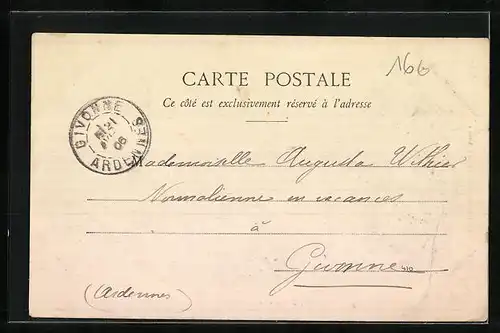 166
CARTE POSTALE
Ce côté est exclusivement réservé à l'adresse
GIVONNE
21
06
ARDENNES
Mademoiselle Augusta
Normalienne en vacances
à
Givonne
(Ardennes)